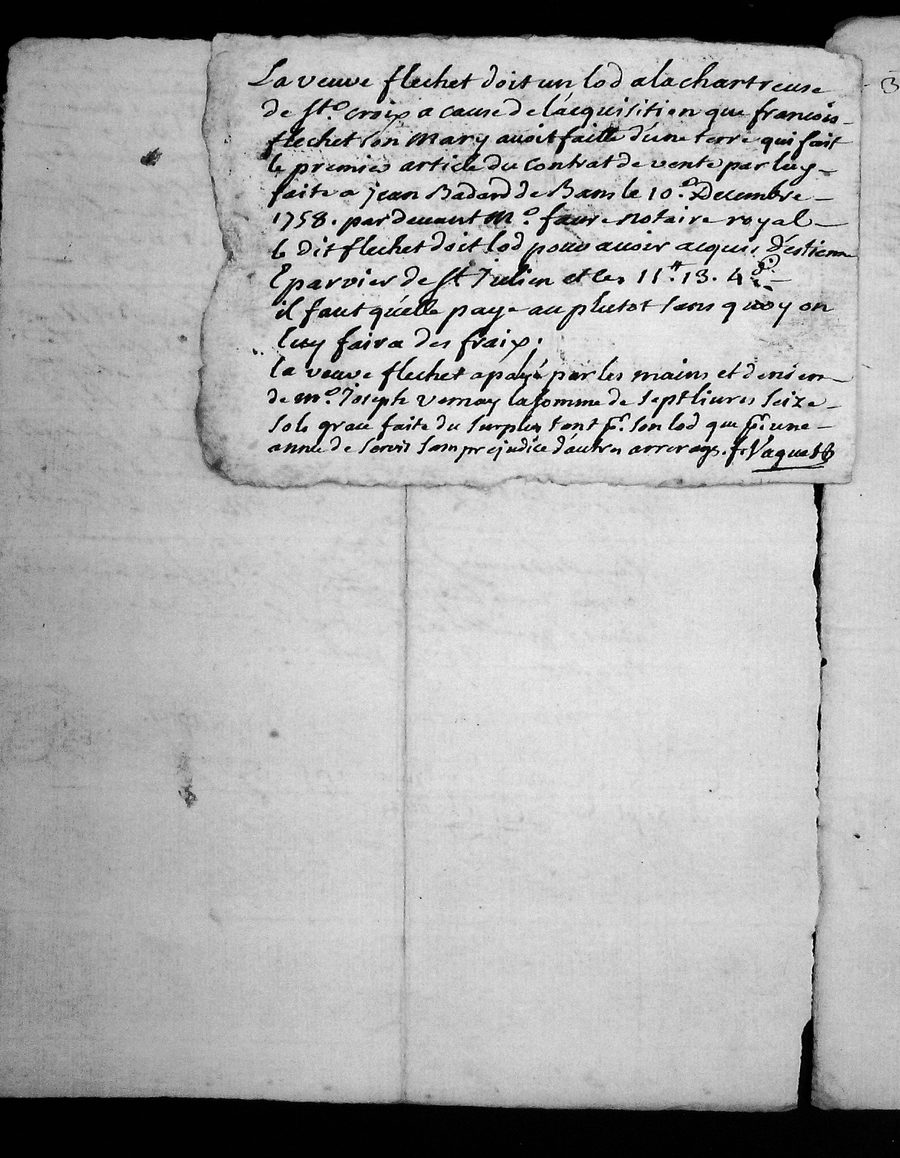 La veuve flechet doit un lod a la chartreuse
de Ste. croix a cause de l'acquisition que francois
flechet son Mary avoit faitte d'une terre qui fait
le premier article du contrat de vente par luy
faite a jean Badard de Bans le 10e. Decembre
1758. pardevant Me. faure Notaire royal
le dit flechet doit lod pour avoir acquis d'estienne
Eparvier de St Julien et les 11tt. 13. 4
il faut qu'elle paye au plutot sans quoy on
luy faira des fraix.
la veuve flechet a payé par les mains et deniers
de me. Joseph vernay la somme de sept livres seize
sols grace faite du surplus tant pr. son lod que pr. une
année de servis sans prejudice d'autres arrerages. f. Vaquet
3